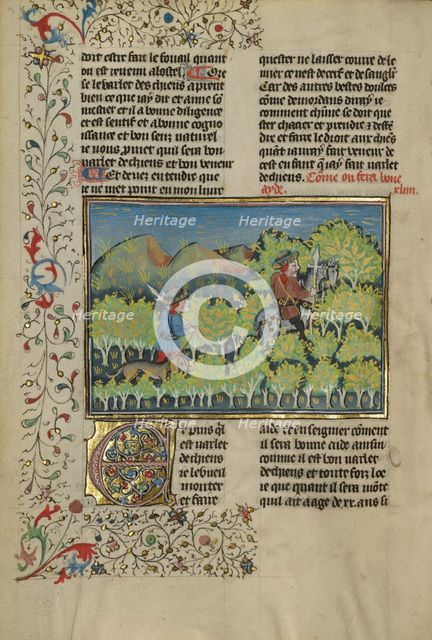 doit estre fait le fouail quant
on est revenu alostel. Que
se le varlet des chiens aprent
bien ce que iay dit et aime so
mestier et il a bonne diligence
et est sentif et a bonne cognoi
ssance et bon sens naturel
ie vous promet quil sera bon
varlet de chiens et bon veneur
Et devez entendre que
ie ne met point en mon livre
quester ne laisser courre de le
vrier ce nest de cerf et de sanglir
Car des autres bestes doulces
come
comment chune se doit que
ster chacer et prendre
dire et faire le droit aux chies
quant iauray fait veneur de
cest enfant que iay fait varlet
de chiens. Come on fera bone
ayde. xliiii.
Heritage
Heritage
Heritage
Heritage
Heritage
Heritage
Heritage
Heritage
C
Et puis ql
est varlet
de chiens
ie le vueil
monter
et faire
aide et enseignier coment
il sera bonne aide ainsin
comme il est bon varlet
de chiens et toute foiz
ie que quant il sera mote
quil ait a age de xx. ans